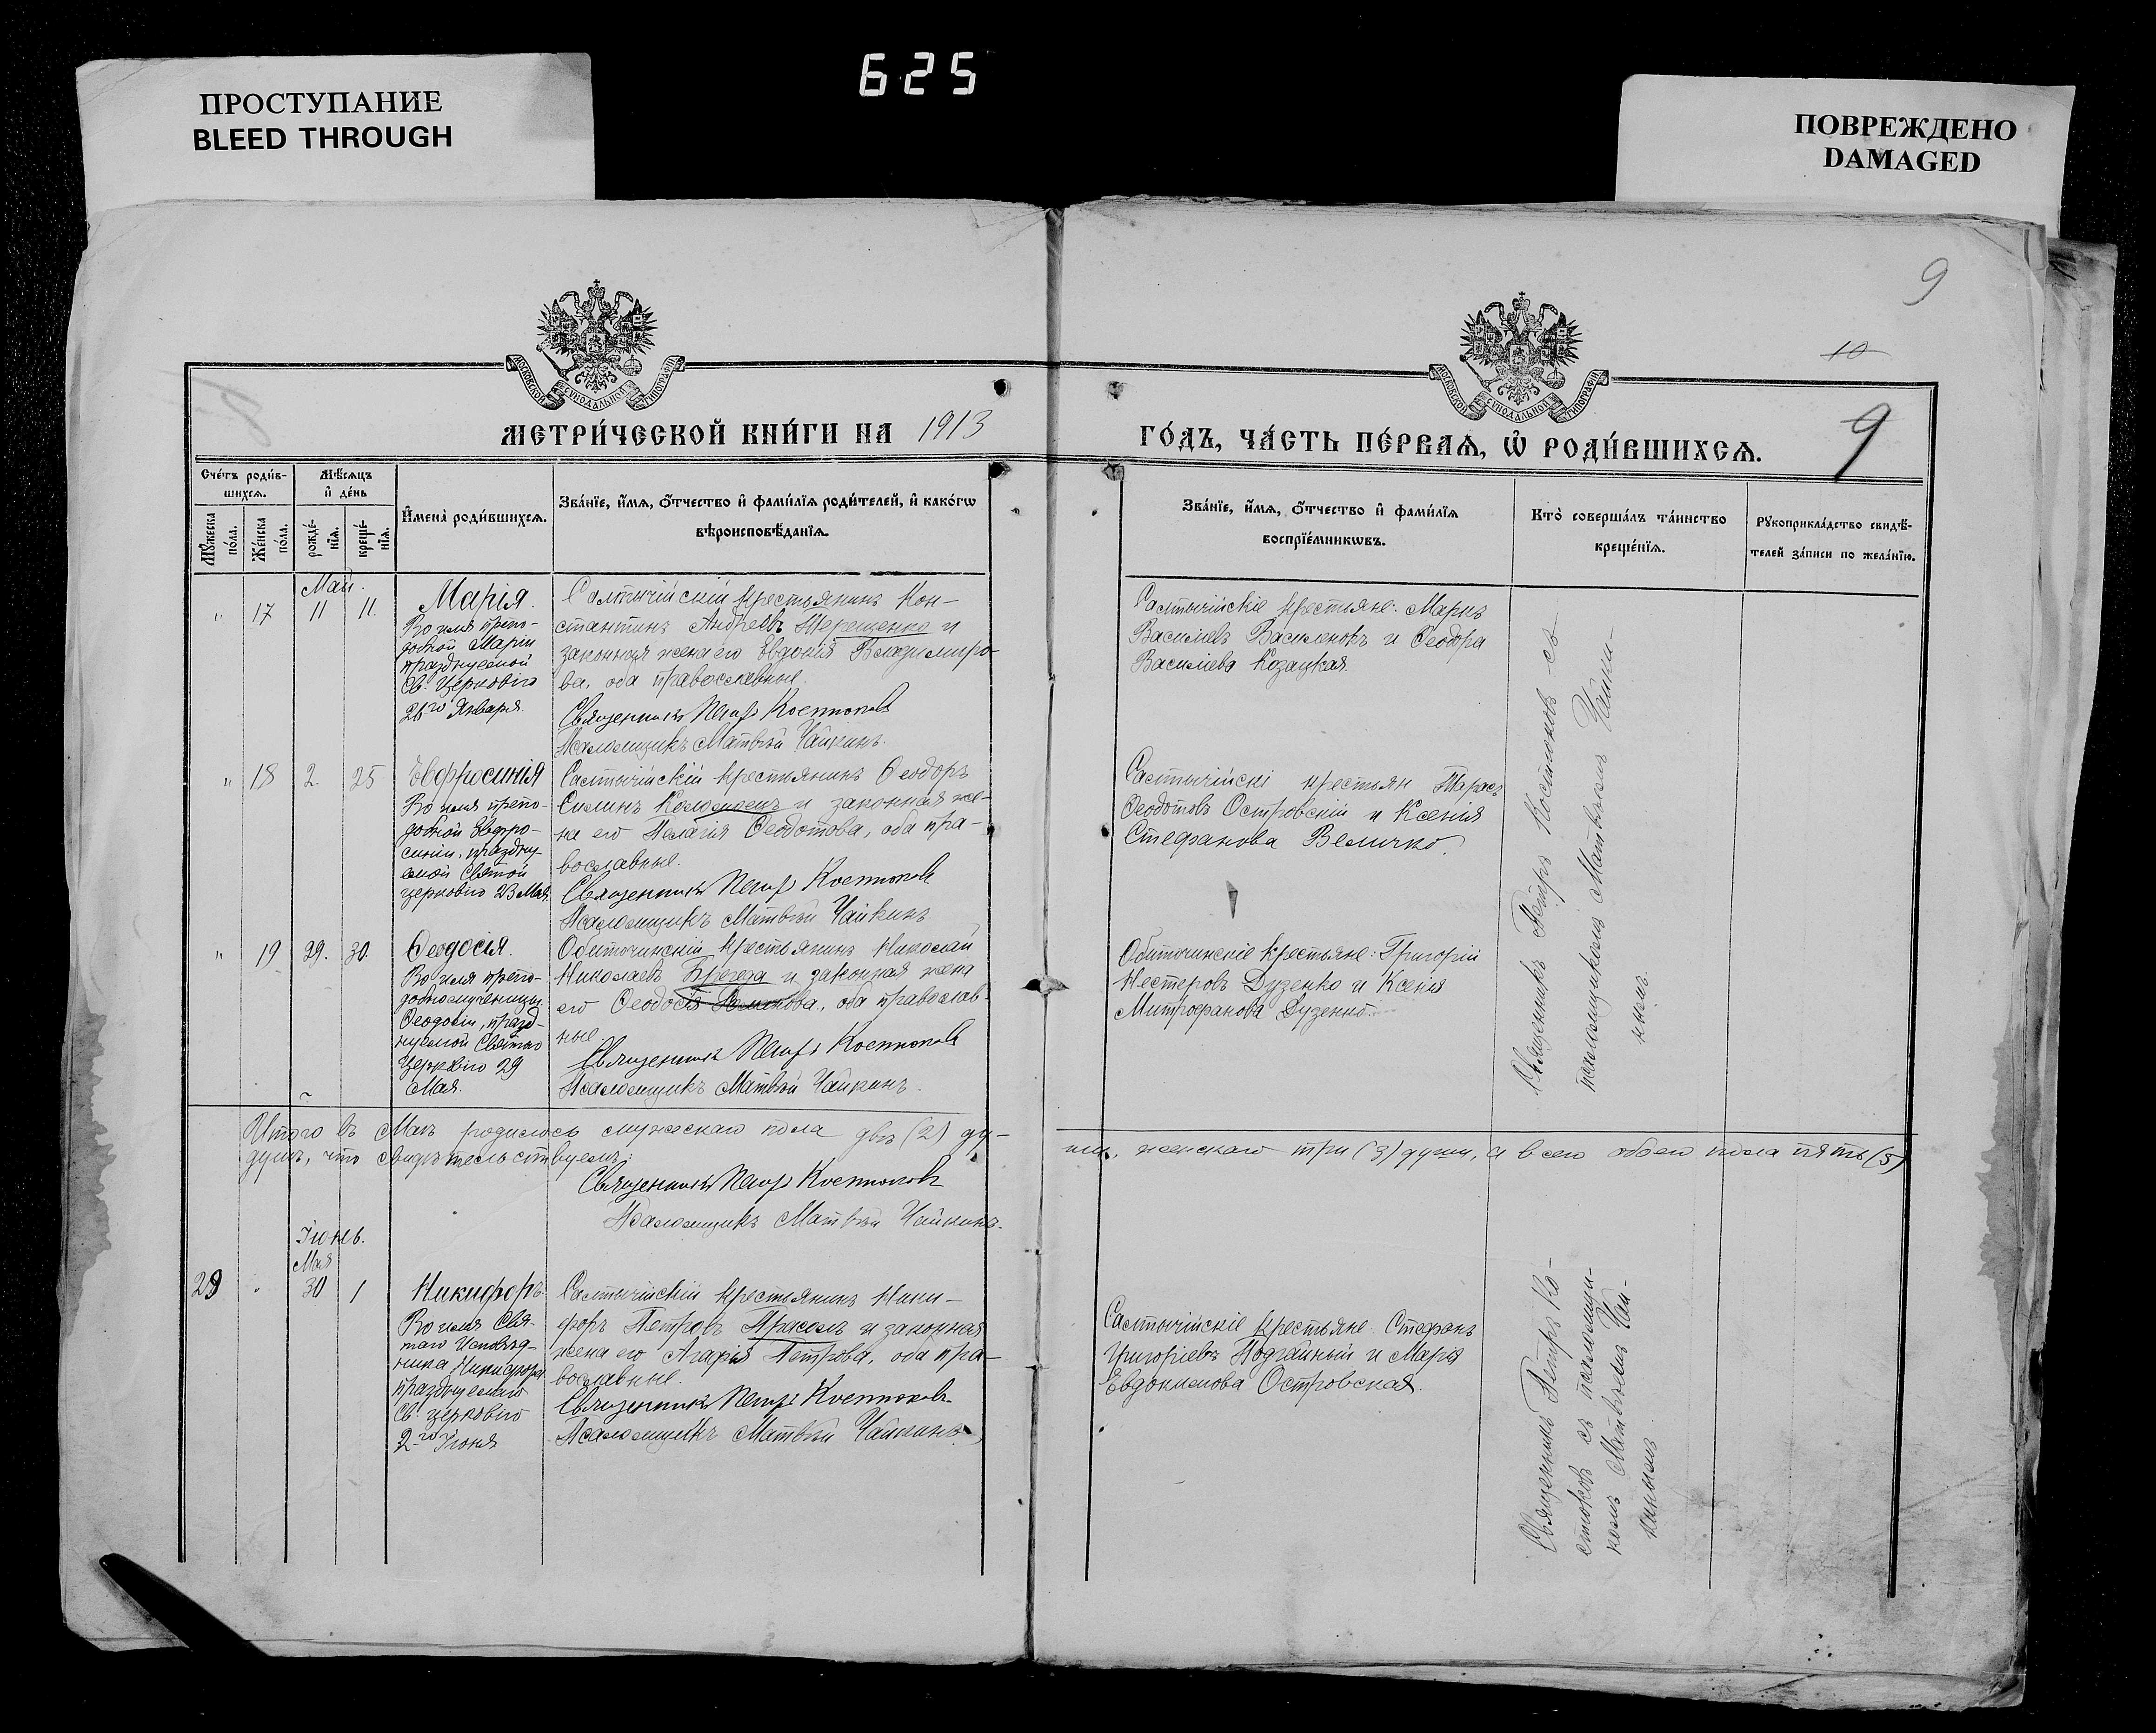 625
ПРОСТУПАНИЕ
BLEED THROUGH
ПОВРЕЖДЕНО
DAMAGED
9
10
9
МОСКОВСКОЙ СѴНОДАЛЬНОЙ ТИПОГРАФІИ
МОСКОВСКОЙ СѴНОДАЛЬНОЙ ТИПОГРАФІИ
МЕТРИ́ЧЕСКОЙ КНИ́ГИ НА 1913
ГО́ДЪ, ЧА́СТЬ ПЕ́РВАѦ, Ѡ҆ РОДИ́ВШИХСѦ.
Сче́тъ роди́в-
шихсѧ.
Мѣ́сѧцъ
и҆ де́нь
Мꙋ́жеска
по́ла.
Же́нска
по́ла.
рожде́-
нїѧ.
креще́-
нїѧ.
И҆мена̀ роди́вшихсѧ.
Зва́нїе, и҆́мѧ, ѻ҆́тчество и҆ фами́лїѧ роди́телей, и҆ како́гѡ
вѣроисповѣ́данїѧ.
Зва́нїе, и҆́мѧ, ѻ҆́тчество и҆ фами́лїѧ
воспрїе́мникѡвъ.
Кто̀ соверша́лъ та́инство
креще́нїѧ.
Рꙋкоприкла́дство свидѣ́-
телей за́писи по жела́нїю.
Май.
" 17 11 11.
Марія.
Во имя препо-
добной Маріи
празднуемой
Св. Церковію
26го Января.
Салтычійскій крестьянинъ Кон-
стантинъ Андреевъ Терещенко и
законная жена его Евдокія Владимиро-
ва, оба православные.
Священникъ Петръ Костюковъ
Псаломщикъ Матвѣй Чайкинъ.
Салтычійскіе крестьяне: Маркъ
Василіевъ Василенковъ и Ѳеодора
Василіева Козацкая.
" 18 2 25
Евфросинія
Во имя препо-
добной Евфро-
синіи, праздну-
емой Святой
церковію 23 Мая.
Салтычійскій крестьянинъ Ѳеодоръ
Силинъ и законная же-
на его Пелагія Ѳеодотова, оба пра-
вославные.
Священникъ Петръ Костюковъ
Псаломщикъ Матвѣй Чайкинъ
Салтычійскі крестьян Тарасъ
Ѳеодотовъ Островскій и Ксенія
Стефанова Величко.
" 19 29. 30.
Ѳеодосія.
Во имя препо-
добномученицы
Ѳеодосіи, празд-
нуемой Святою
Церковію 29
Мая.
Обиточинскій крестьянинъ Николай
Николаевъ и законная жена
его Ѳеодосія, оба православ-
ные.
Священникъ Петръ Костюковъ
Псаломщикъ Матвѣй Чайкинъ.
Обиточинскіе крестьяне: Григорій
Нестеровъ Дузенко и Ксенія
Митрофанова Дузенко.
Священникъ Петръ Костюковъ съ
псаломщикомъ Матвѣемъ Чайки-
нымъ.
Итого въ Маѣ родилось мужескаго пола двѣ (2) ду-
ши, женскаго три (3) души, а всего обоего пола пять (5)
душъ, что свидѣтельствуемъ:
Священникъ Петръ Костюковъ
Псаломщикъ Матвѣй Чайкинъ.
Іюнь.
Мая
29 " 30 1
Никифоръ
Во имя Свя-
таго Исповѣд-
ника Никифора
празднуемаго
Св. церковію
2го Іюня
Салтычійскій крестьянинъ Ники-
форъ Петровъ Прасолъ и законная
жена его Агафія Петрова, оба пра-
вославные.
Священникъ Петръ Костюковъ
Псаломщикъ Матвѣй Чайкинъ.
Салтычійскіе крестьяне: Стефанъ
Григоріевъ Подгайный и Марія
Евдокимова Островская.
Священникъ Петръ Ко-
стюковъ съ псаломщи-
комъ Матвѣемъ Чай-
кинымъ.